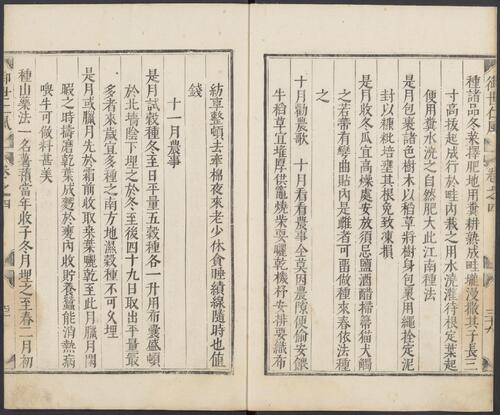 種諸品冬菜擇肥地用糞耕熟成畦壠漫撒其子長三
寸高拔起成行於畦內栽之用水澆灌待根定葉起
便用糞水澆之自然肥大此江南種法
是月包裹諸色樹木以稻草將樹身包裹用繩拴定泥
封以糠粃培壅其根免致凍損
是月收冬瓜宜高燥處安放須忌鹽酒醋掃帚猫犬觸
之若帶有彎曲貼肉內是雌者可畱做種來春依法種
之
十月勸農歌 十月看看農事全莫因農隙便偷安餵
牛稻草宜堆厚供竈燒柴要曬乾機杼女排要織布
紡車整頓去牽棉夜來老少休貪睡績線隨時也值
錢
十一月農事
是月試穀種冬至日平量五穀種各一升用布囊盛頓
於北墻陰下埋之於冬至後四十九日取出平量最
多者來歲宜多種之南方地濕穀種不可久埋
是月或臘月先於霜前收取桑葉曬乾至此月臘月閒
暇之時擣磨乾葉成麪於甕內收貯春蠶能消熱病
喫牛可做料甚美
種山藥法一名薯蕷當年收子冬月埋之至春二月初
御世仁風
卷之四